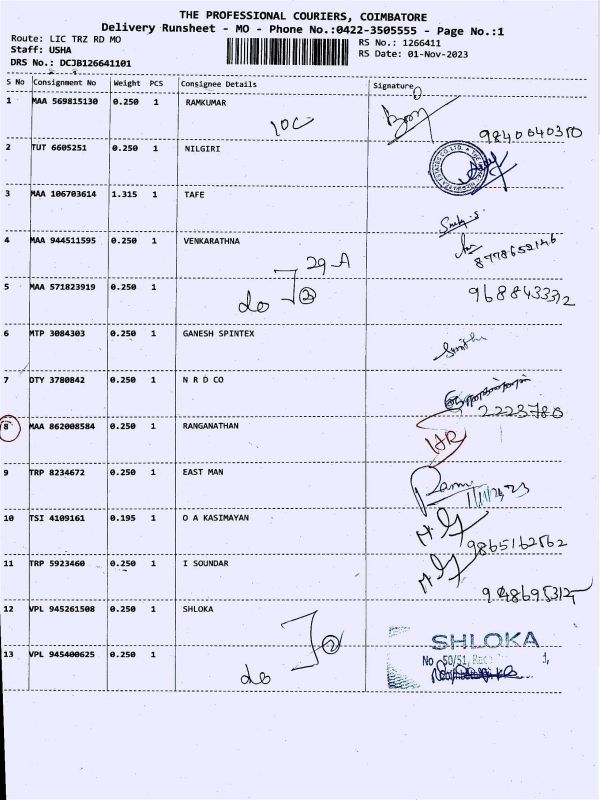 THE PROFESSIONAL COURIERS, COIMBATORE
Delivery Runsheet - MO - Phone No.:0422-3505555 - Page No.:1
Route: LIC TRZ RD MO
RS No.: 1266411
Staff: USHA
RS Date: 01-Nov-2023
DRS No.: DCJB126641101
S No Consignment No Weight PCS Consignee Details Signature
1 MAA 569815130 0.250 1 RAMKUMAR
10C
9840640310
2 TUT 6605251 0.250 1 NILGIRI
3 MAA 106703614 1.315 1 TAFE
4 MAA 944511595 0.250 1 VENKARATHNA
8778652146
29-A
5 MAA 571823919 0.250 1
do 2
9688433312
6 MTP 3084303 0.250 1 GANESH SPINTEX
7 DTY 3780842 0.250 1 N R D CO
2223780
8 MAA 862008584 0.250 1 RANGANATHAN
9 TRP 8234672 0.250 1 EAST MAN
10 TSI 4109161 0.195 1 O A KASIMAYAN
9865162562
11 TRP 5923460 0.250 1 I SOUNDAR
12 VPL 945261508 0.250 1 SHLOKA
SHLOKA
No 50/51,
13 VPL 945400625 0.250 1
do 2